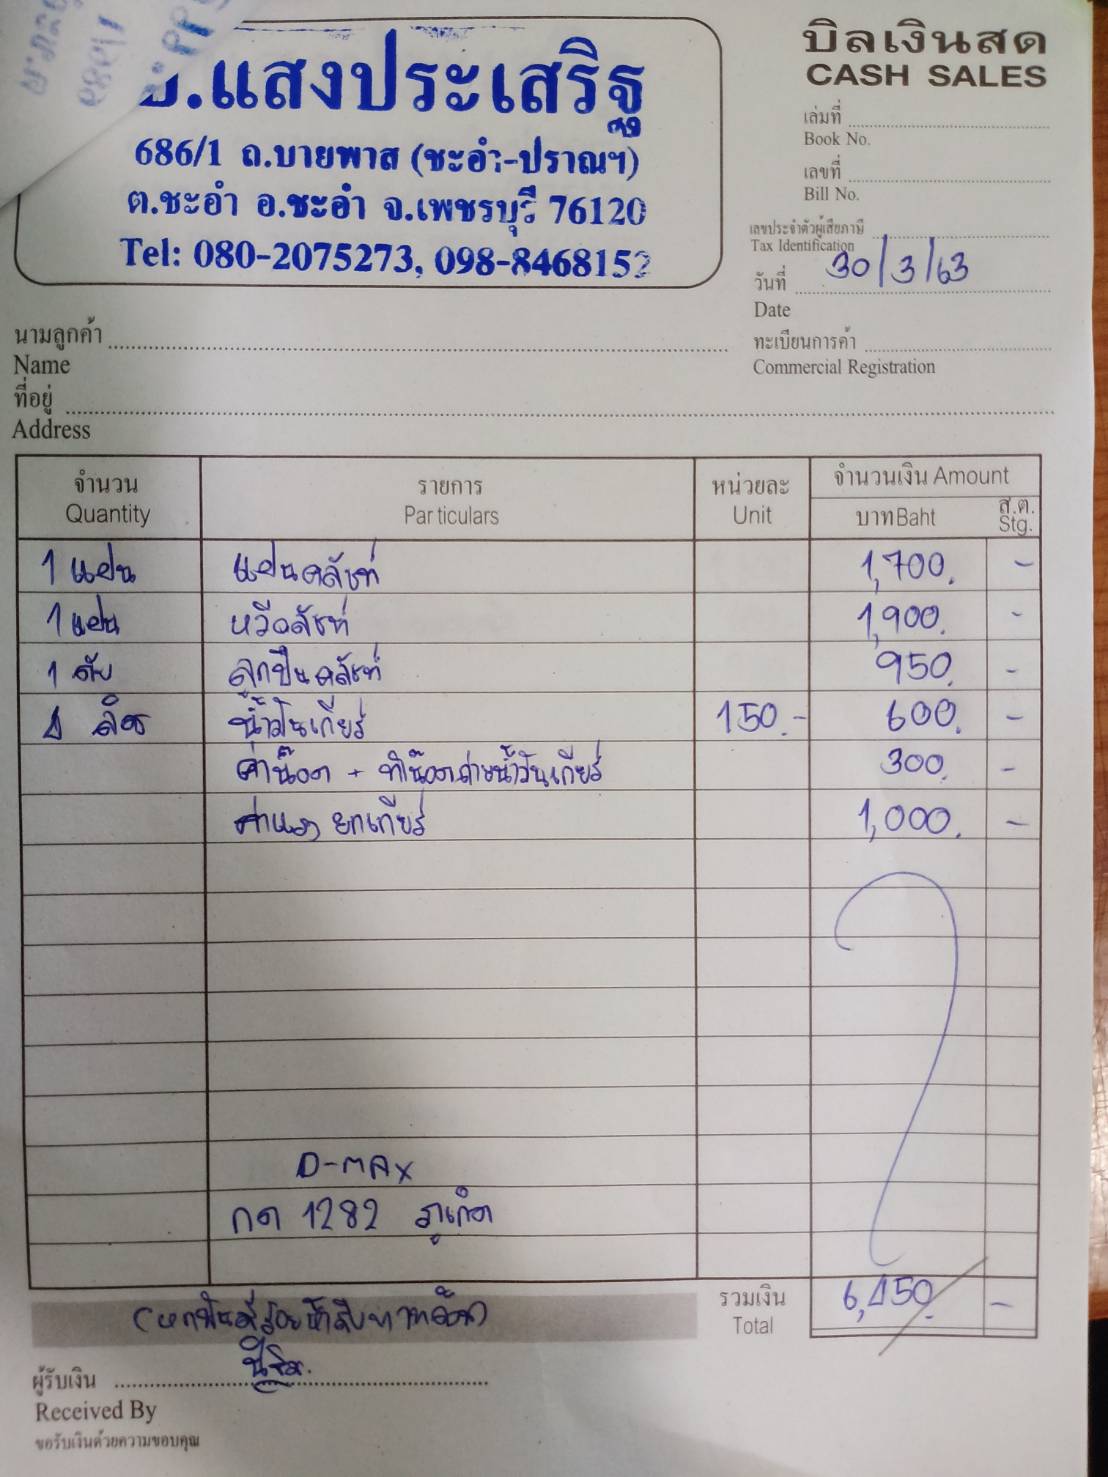 .แสงประเสริฐ
686/1 ถ.บายพาส (ชะอำ-ปราณฯ)
ต.ชะอำ อ.ชะอำ จ.เพชรบุรี 76120
Tel: 080-2075273, 098-8468152
บิลเงินสด
CASH SALES
เล่มที่
Book No.
เลขที่
Bill No.
เลขประจำตัวผู้เสียภาษี
Tax Identification
วันที่ 30/3/63
Date
นามลูกค้า
Name
ทะเบียนการค้า
Commercial Registration
ที่อยู่
Address
จำนวน รายการ หน่วยละ จำนวนเงิน Amount
Quantity Particulars Unit บาท Baht ส.ต. Stg.
1 แผ่น แผ่นคลัชท์ 1,700. -
1 แผ่น หวีคลัชท์ 1,900. -
1 ลูกปืนคลัชท์ 950. -
4 ลิตร น้ำมันเกียร์ 150.- 600. -
ค่าน๊อต + น้ำมันเกียร์ 300. -
ค่าแรง ยกเกียร์ 1,000. -
D-MAX
กต 1282 ภูเก็ต
(หกพันสี่ร้อยห้าสิบบาทถ้วน)
รวมเงิน 6,450. -
Total
ผู้รับเงิน
Received By
ขอรับเงินด้วยความขอบคุณ